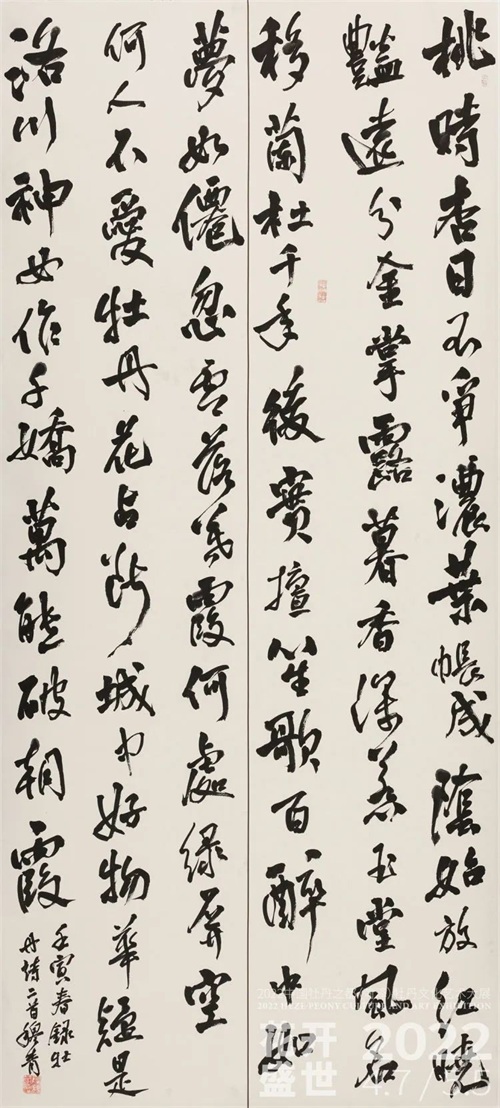 桃時杏日不爭濃葉帳成陰始放紅曉
豔遠分金掌露暮香深惹玉堂風名
移蘭杜千年後貴擅笙歌百醉中如
夢如僊忽零落暮霞何處綠屏空
何人不愛牡丹花占斷城中好物華疑是
洛川神女作千嬌萬態破朝霞
壬寅春録牡
丹詩二首穆青
2022 HEZE PEONY CULTURE AND ART EXHIBITION
花开
盛世
2022
4.7/5.5